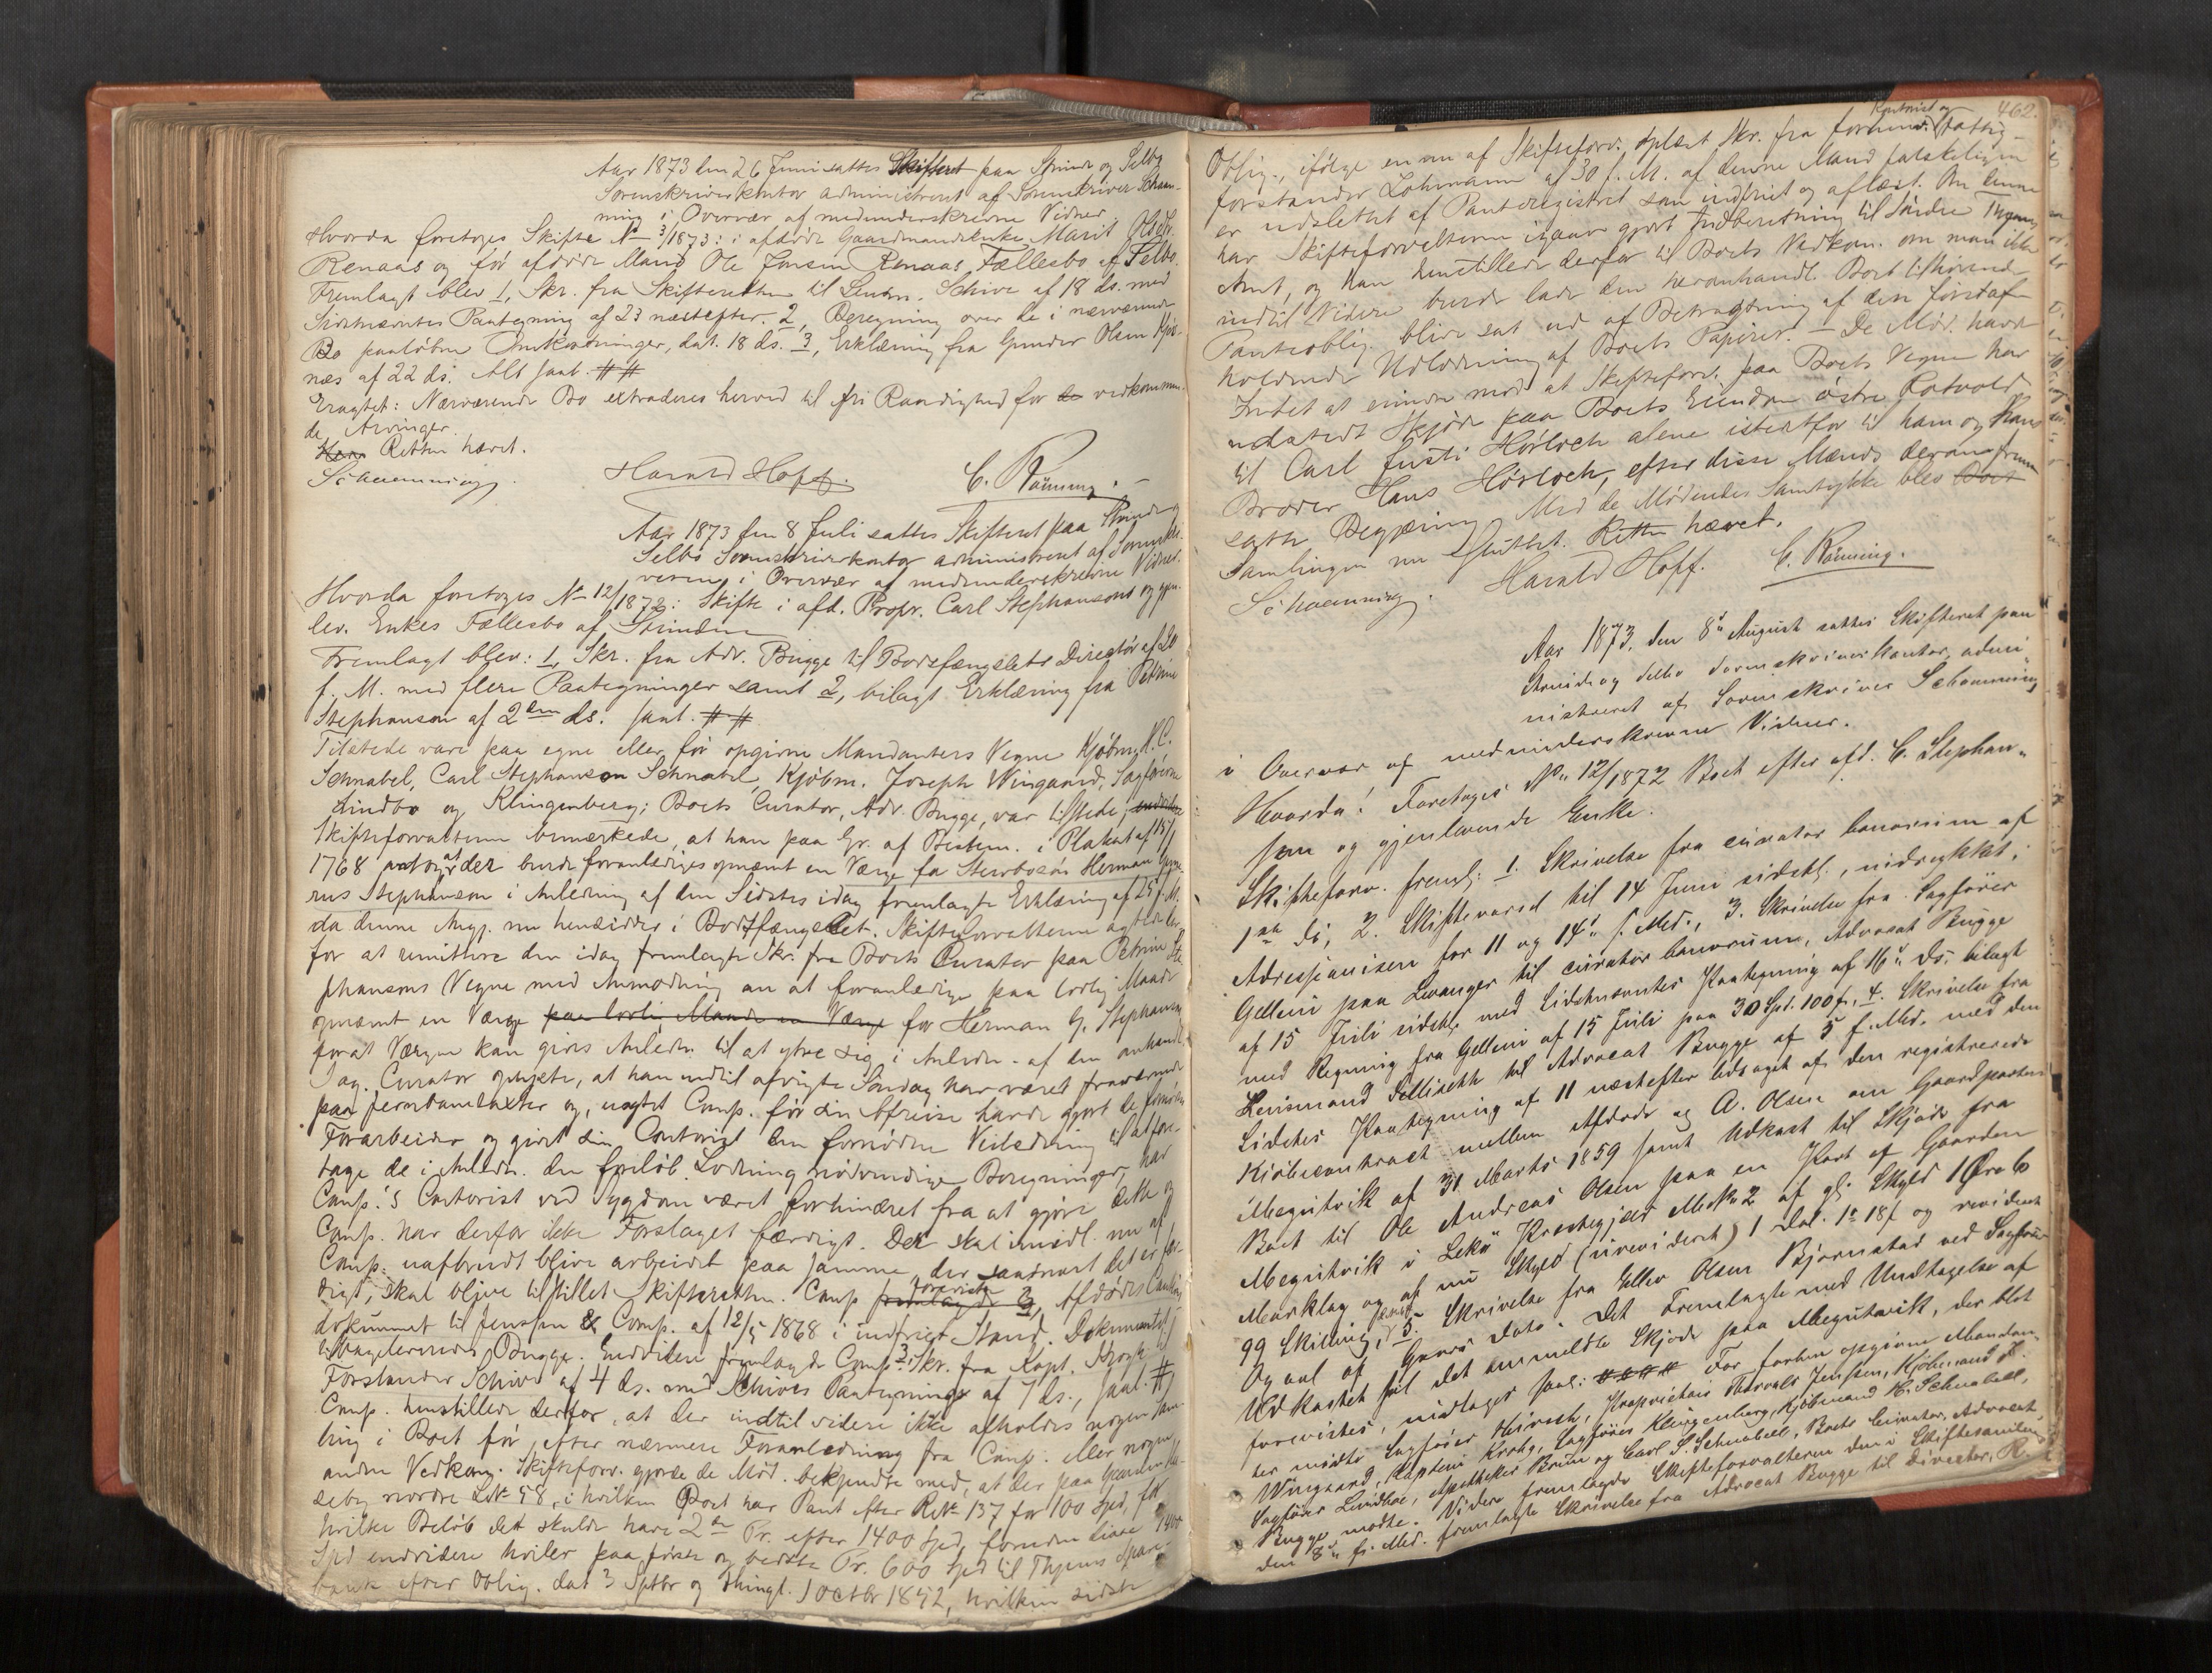 Aar 1873 den 26 Juni sattes Skifteret paa Strinde og Selbo
Sorenskriverkontor administreret af Sorenskriver Schaan-
ning i Overvær af medunderskrevne Vidner.
Hvorda foretoges Skifte No 3/1873: i afdøde Gaardmandsenke Marit Olsdtr.
Renaas og før afdøde Mand Ole Jensen Renaas Fællesbo af Selbo.
Fremlagt blev 1, Skr. fra Skifteretten til Lensm. Schive af 18 ds. med
Sidstnævntes Paategning af 23 næstefter. 2, Beregning over de i nærværende
Bo paaløbne Omkostninger, dat. 18 ds. 3, Erklæring fra Gunder Olsen
næs af 22 ds. Alt saal. # #
Eragtet: Nærværende Bo extraderes herved til fri Raadighed for de vedkommen-
de Arvinger.
Retten hævet.
Schaanning. Harald Hoff. C. Rønning.
Aar 1873 den 8 Juli sattes Skifteret paa Strinde og
Selbo Sorenskriverkontor administreret af Sorenskri-
veren i Overvær af medunderskrevne Vidner.
Hvorda foretoges No 12/1872: Skifte i afd. Propr. Carl Stephansons og gjen-
lev. Enkes Fællesbo af Strinden
Fremlagt blev: 1, Skr. fra Adv. Bugge til Bodsfængslets Directør af 20
f. M. med flere Paategninger samt 2, bilagt Erklæring fra Petrine
Stephanson af 2den ds. saal. # #
Tilstede vare paa egne eller før opgivne Mandanters Vegne Kjøbm. H. C.
Schnabel, Carl Stephanson Schnabel, Kjøbm. Joseph Wingaard, Sagførerne
Lindbo og Klingenberg; Boets Curator, Adv. Bugge, var tilstede; endvidere
Skifteforvalteren bemærkede, at han paa Gr. af Bestem. i Plakat af 15/1
1768 antog at der burde foranlediges opnævnt en Værge for Stervbosøn Herman
rus Stephanson i Anledning af den Sidstes idag fremlagte Erklæring af 25 f. M.
da denne Arvg. nu hensidder i Bodsfængslet. Skifteforvalteren agtede der-
for at remittere den idag fremlagte Skr. fra Boets Curator paa Petrine Ste-
phansons Vegne med Anmodning om at foranledige paa lovlig Maade
opnævnt en Værge paa lovlig Maade en Værge for Herman G. Stephanson
forat Værgen kan gives Anledn. til at ytre sig i Anledn. af den omhandl.
Sag. Curator oplyste, at han indtil afvigte Søndag har været fraværende
paa Jernbanetaxter og, uagtet Comp. før sin Afreise havde gjort de fornødne
Forarbeider og givet sin Contorist den fornødne Veiledning til at fore-
tage de i Anledn. den foreløb. Lodning nødvendige Beregninger, har
Comp.'s Contorist ved Sygdom været forhindret fra at gjøre dette og
Comp. har derfor ikke Forslaget færdigt. Der skal imidl. nu af
Comp. uafbrudt blive arbeidet paa samme der saasnart det er fær-
digt, skal blive tilstillet Skifteretten. Comp foreviste fremlagde 3, Afdødes
dokument til Jenssen & Comp. af 12/5 1868 i indfriet Stand. Dokumentet
tilbageleveredes Bugge. Endvidere fremlagde Comp. 3. Skr. fra Kapt. Krogh til
Forstander Schive af 4 ds. med Schives Paategning af 7 ds., saal. #
Comp. henstillede derfor, at der indtil videre ikke afholdes nogen Sam-
ling i Boet før efter nærmere Foranledning fra Comp. eller nogen
anden Vedkom. Skifteforv. gjorde de Mød. bekjendte med, at der paa Gaarden
seby nordre L.No 48, i hvilken Boet har Pant efter R.No 137 for 100 Spd, for
hvilke Beløb det skulde have 2den Pr. efter 1400 Spd, foruden disse 1400
Spd endvidere hviler paa første og bedste Pr. 600 Spd til Thjems Spare-
bank efter Oblig. dat 3 Sptbr og thingl. 1 Octbr 1852, hvilken sidste
462.
Kontorist og
Oblig., ifølge en nu af Skifteforv. oplæst Skr. fra forhenv. Fattig-
forstander Lohrmann af 30 f. M. af denne Mand falskeligen
er udslettet af Panteregistret som indfriet og aflæst. Om denne
har Skifteforvalteren igaar gjort Indberetning til Søndre Thjems
Amt, og han henstillede derfor til Boets Vedkom. om man ikke
indtil Videre burde lade den heromhandl. Boet tilhørende
Panteoblig. blive sat ud af Betragtning af den forestaa-
holdende Udlodning af Boets Papirer. — De Mød. havde
Intet at erindre mod at Skifteforv. paa Boets Vegne har
udstedt Skjøde paa Boets Eiendom østre Rotvold
til Carl Justi Hørloch alene istedetfor til ham og Hans
Broder Hans Hørloch, efter disse Mænds derom frem-
satte Begjæring. Med de Mødendes Samtykke blev Boet
Samlingen nu sluttet. Retten hævet.
Schaanning. Harald Hoff. C. Rønning.
Aar 1873. den 8de August sattes Skifteret paa
Strinde og Selbo Sorenskriverkontor, admi-
nistreret af Sorenskriver Schaanning
i Overvær af medunderskrevne Vidner.
Hvorda: Foretoges No 12/1872 Boet efter afd. C. Stephan-
son og gjenlevende Enke.
Skifteforv. freml: 1. Skrivelse fra curator bonorum af
1ste ds, 2. Skiftevarsel til 14 Juni sidstl., indrykket i
Adresseavisen for 11 og 14de f. Md., 3. Skrivelse fra Sagfører
Gellein paa Levanger til curator bonorum, Advocat Bugge
af 15 Juli sidstl. med Sidstnævntes Paategning af 16de ds, bilagt
med Regning fra Gellein af 15 Juli paa 30 Spd. 100 s., 4. Skrivelse fra
Lensmand Sellisett til Advocat Bugge af 5 f. Md. med den
Sidstes Paategning af 11 næstefter ledsaget af den registrerede
Kjøbecontract mellem Afdøde og A. Olsen om Gaardparten
Megistvik af 31 Marts 1859 samt Udkast til Skjøde fra
Boet til Ole Andreas Olsen paa en Part af Gaarden
Megistvik i Lekø Præstegjeld M.No 2 af gl. Skyld 1 Øre 6
Marklag og af ny Skyld (urevideret) 1 Dal. 1 o 18 s og revideret
99 Skilling, samt 5. Skrivelse fra Ellev Olsen Bjørnstad ved Sagfører
Ogaal af Gaars Dato. Det Fremlagte med Undtagelse af
Udkastet til det anmeldte Skjøde paa Megistvik, der blot
forevistes, indtages saal: # # # # For forhen opgivne Mandan-
ter mødte Sagfører Hirsch, Proprietair Thorvald Jenssen, Kjøbmand J.
Wingaard, Kaptein Krohg, Sagfører Klingenberg, Kjøbmand H. Schnabell,
Sagfører Lindboe, Apotheker Bruun og Carl S. Schnabell, Boets Curator, Advocat
Bugge mødte. Videre fremlagde Skifteforvalteren den i Skiftesamling
den 8de f. Md. fremlagte Skrivelse fra Advocat Bugge til Directør, R.